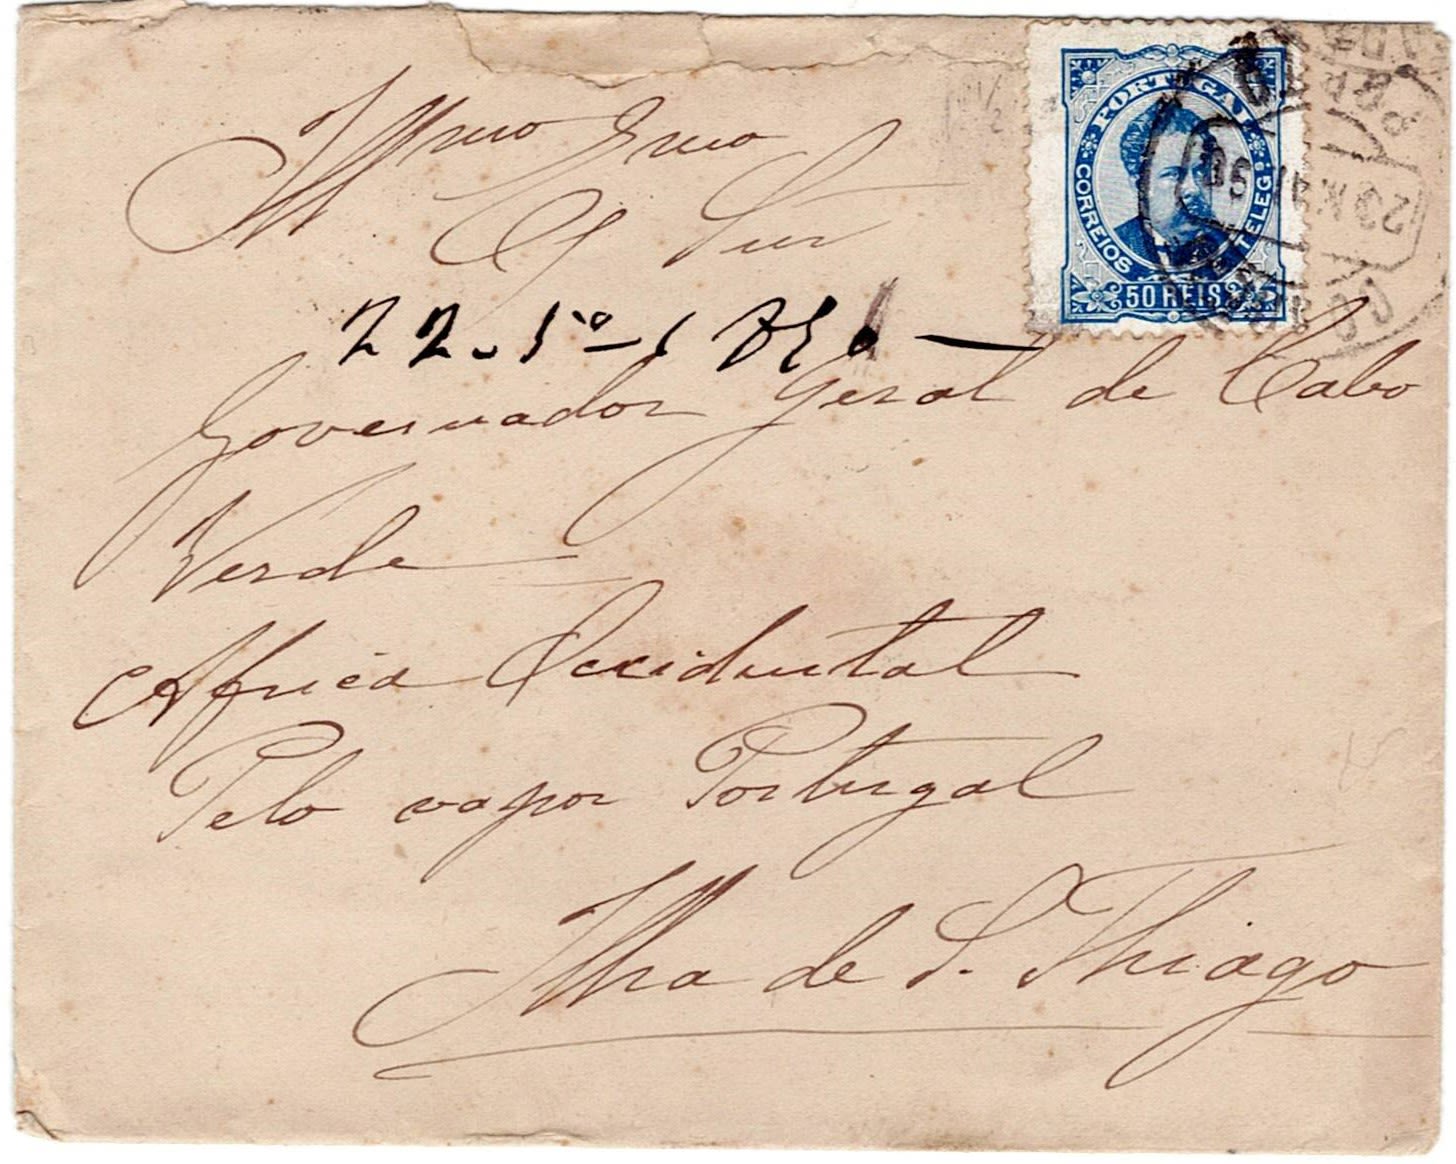 Illmo Exmo
Sur
22-5º-1890
Governador Geral de Cabo
Verde
Africa Occidental
Pelo vapor Portugal
Ilha de S. Thiago
PORTUGAL
CORREIOS
TELEG.
50 REIS